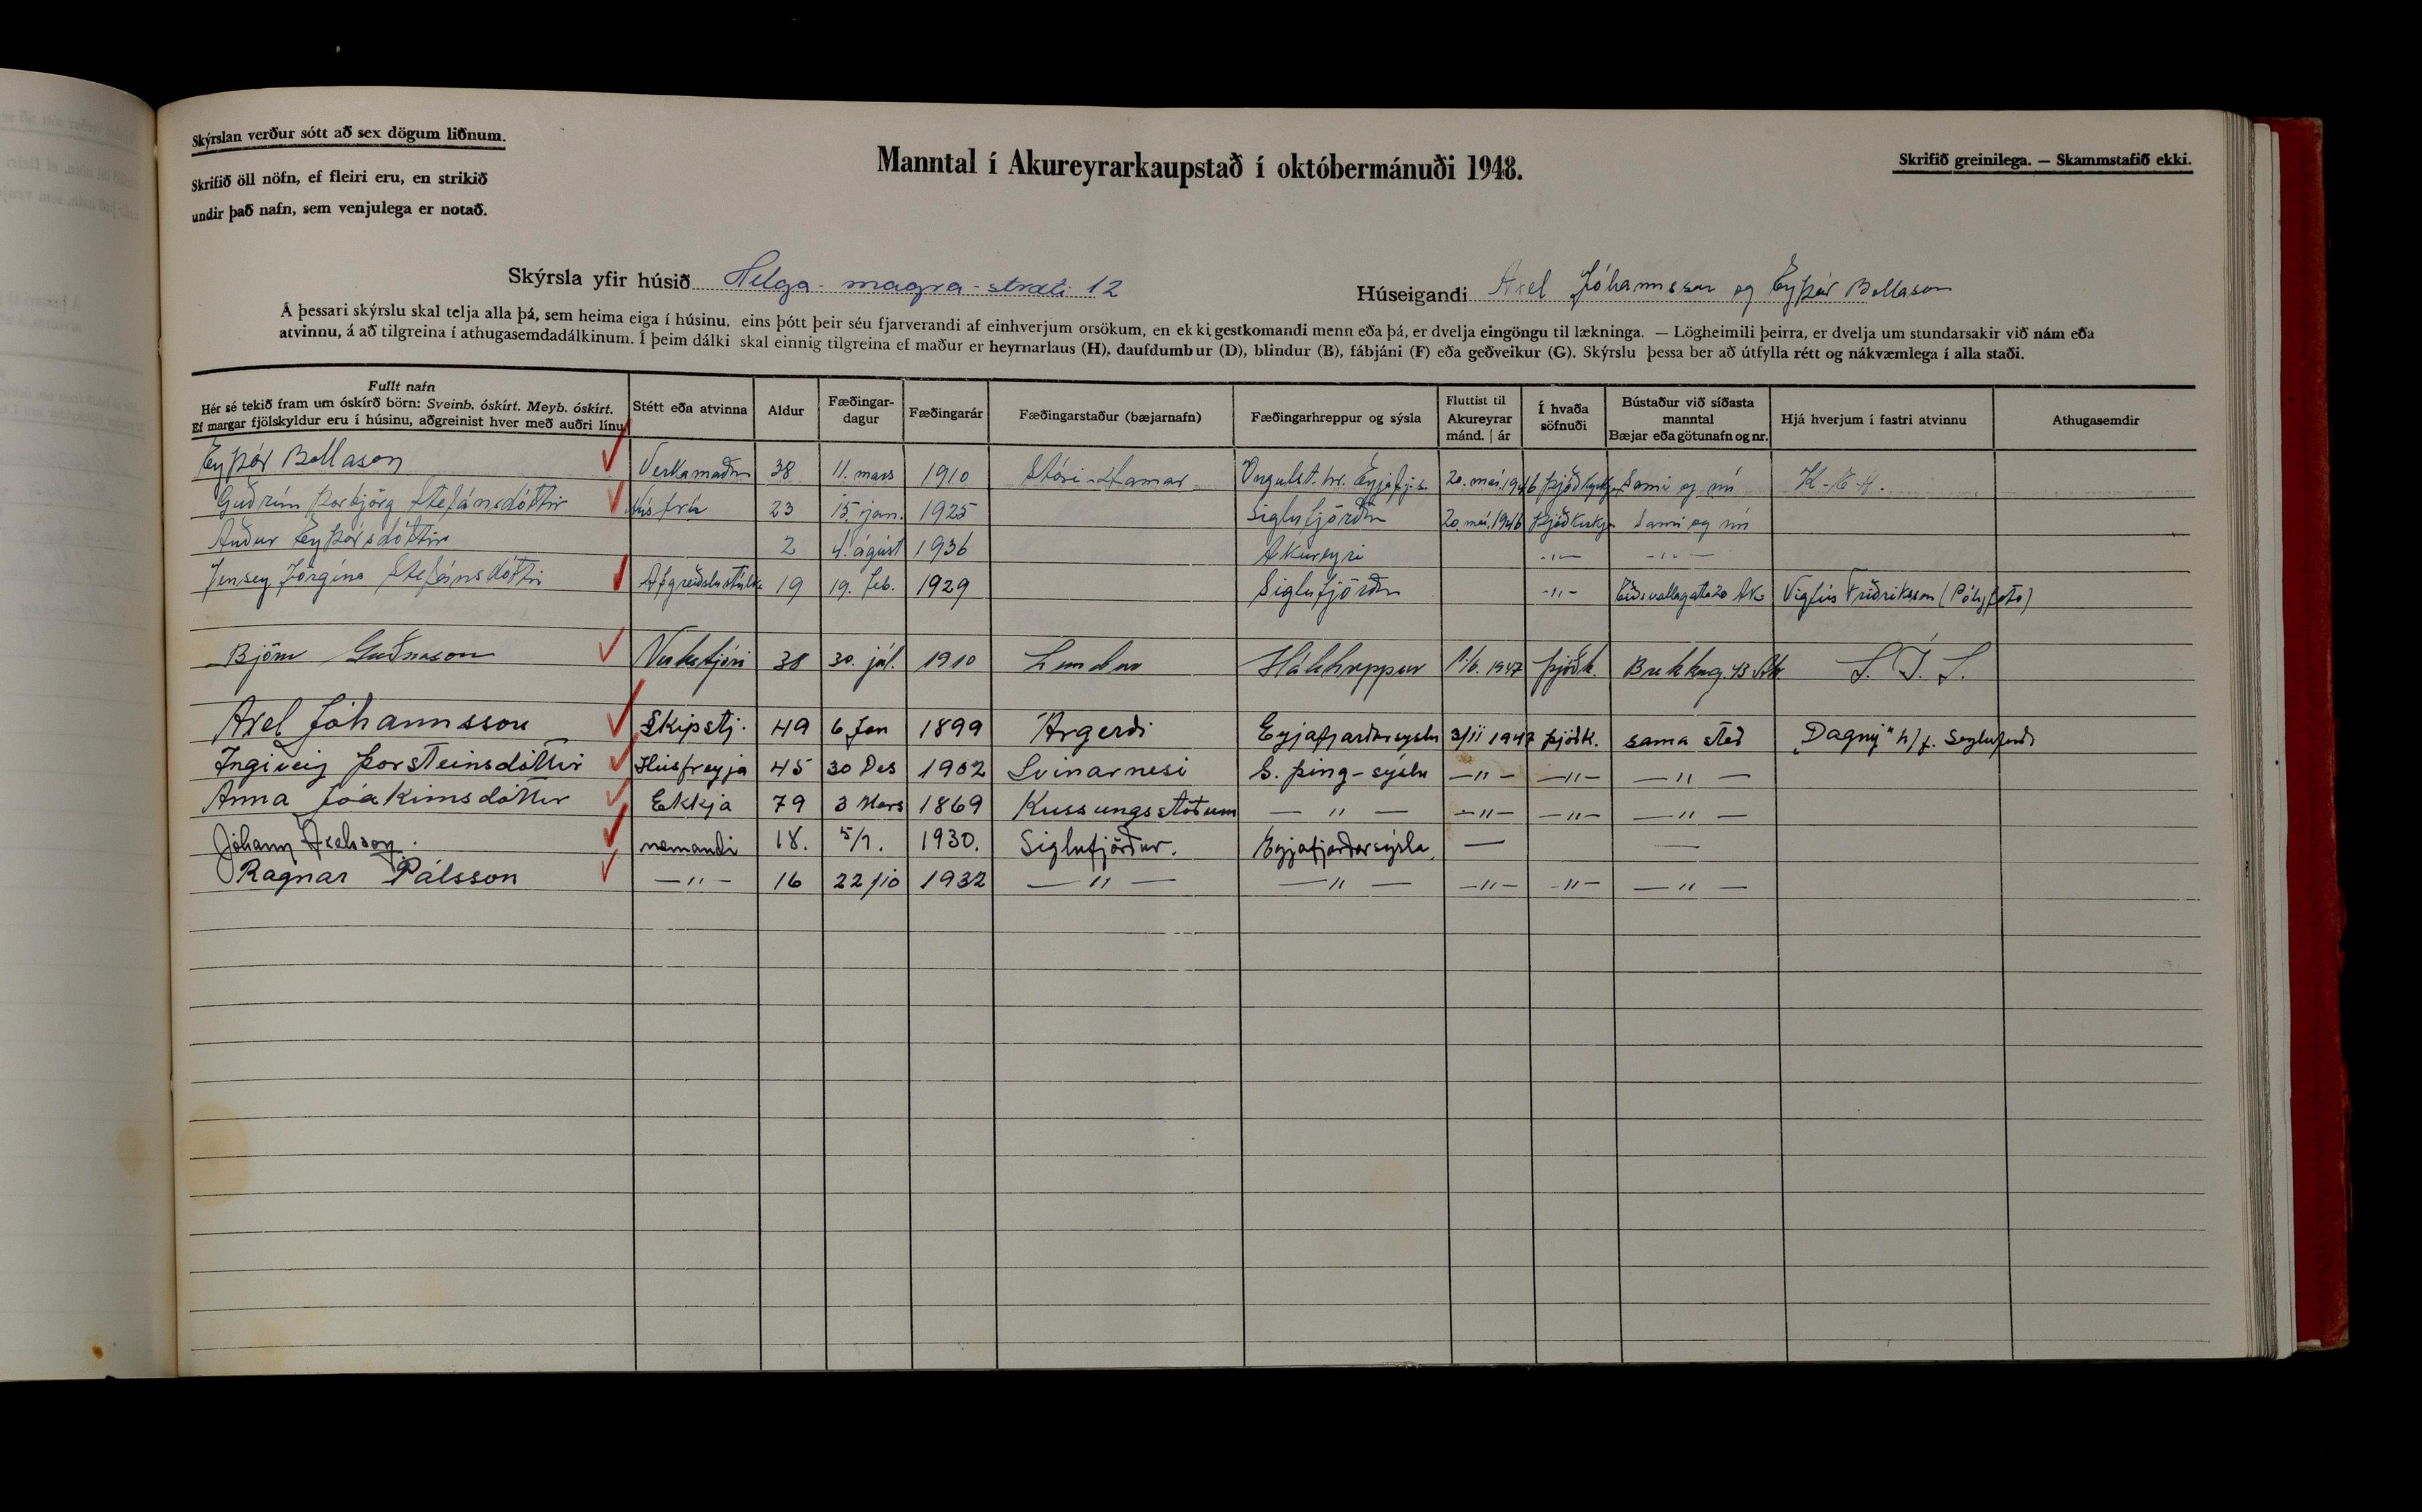 Skýrslan verður sótt að sex dögum liðnum.
Skrifið öll nöfn, ef fleiri eru, en strikið
undir það nafn, sem venjulega er notað.
Manntal í Akureyrarkaupstað í októbermánuði 1948.
Skrifið greinilega. — Skammstafið ekki.
Skýrsla yfir húsið Helga-magra-stræti 12
Húseigandi Axel Jóhannsson og Eyþór Bollason
Á þessari skýrslu skal telja alla þá, sem heima eiga í húsinu, eins þótt þeir séu fjarverandi af einhverjum orsökum, en ekki gestkomandi menn eða þá, er dvelja eingöngu til lækninga. — Lögheimili þeirra, er dvelja um stundarsakir við nám eða
atvinnu, á að tilgreina í athugasemdadálkinum. Í þeim dálki skal einnig tilgreina ef maður er heyrnarlaus (H), daufdumbur (D), blindur (B), fábjáni (F) eða geðveikur (G). Skýrslu þessa ber að útfylla rétt og nákvæmlega í alla staði.
Fullt nafn
Hér sé tekið fram um óskírð börn: Sveinb. óskírt. Meyb. óskírt.
Ef margar fjölskyldur eru í húsinu, aðgreinist hver með auðri línu
Stétt eða atvinna
Aldur
Fæðingar-
dagur
Fæðingarár
Fæðingarstaður (bæjarnafn)
Fæðingarhreppur og sýsla
Fluttist til
Akureyrar
mánd. | ár
Í hvaða
söfnuði
Bústaður við síðasta
manntal
Bæjar eða götunafn og nr.
Hjá hverjum í fastri atvinnu
Athugasemdir
Eyþór Bollason Verkamaður 38 11. mars 1910 Stóri-Hamar Öngulst.hr. Eyjafj.s. 20. maí 1946 Þjóðkirkju Sami og nú K.E.A.
Guðrún Þorbjörg Stefánsdóttir Húsfrú 23 15. jan. 1925 Siglufjörður 20. maí 1946 Þjóðkirkju Sami og nú
Auður Eyþórsdóttir 2 4. ágúst 1936 Akureyri -"- -"-
Jensey Jörgína Stefánsdóttir Afgreiðslustúlka 19 19. feb. 1929 Siglufjörður -"- Eiðsvallagata 20 Ak. Vigfús Friðriksson (Pólyfoto)
Björn Guðnason Verkstjóri 38 30. júl. 1910 Lundur Hálshreppur 1/6. 1947 Þjóðk. Brekkug. 43 Ak. S.Í.S.
Axel Jóhannsson Skipstj. 49 6 Jan 1899 Árgerði Eyjafjarðarsýslu 3/11 1947 Þjóðk. sama stað „Dagný" h/f. Siglufirði
Ingiveig Þorsteinsdóttir Húsfreyja 45 30 Des 1902 Svinarnesi S. þing-sýslu —"— —"— —"—
Anna Jóakimsdóttir Ekkja 79 3 Mars 1869 Kussungsstöðum —"— —"— —"— —"—
Jóhann Axelsson. nemandi 18. 5/7. 1930. Siglufjörður. Eyjafjarðarsýsla. — —
Ragnar Pálsson —"— 16 22/10 1932 —"— —"— —"— —"— —"—